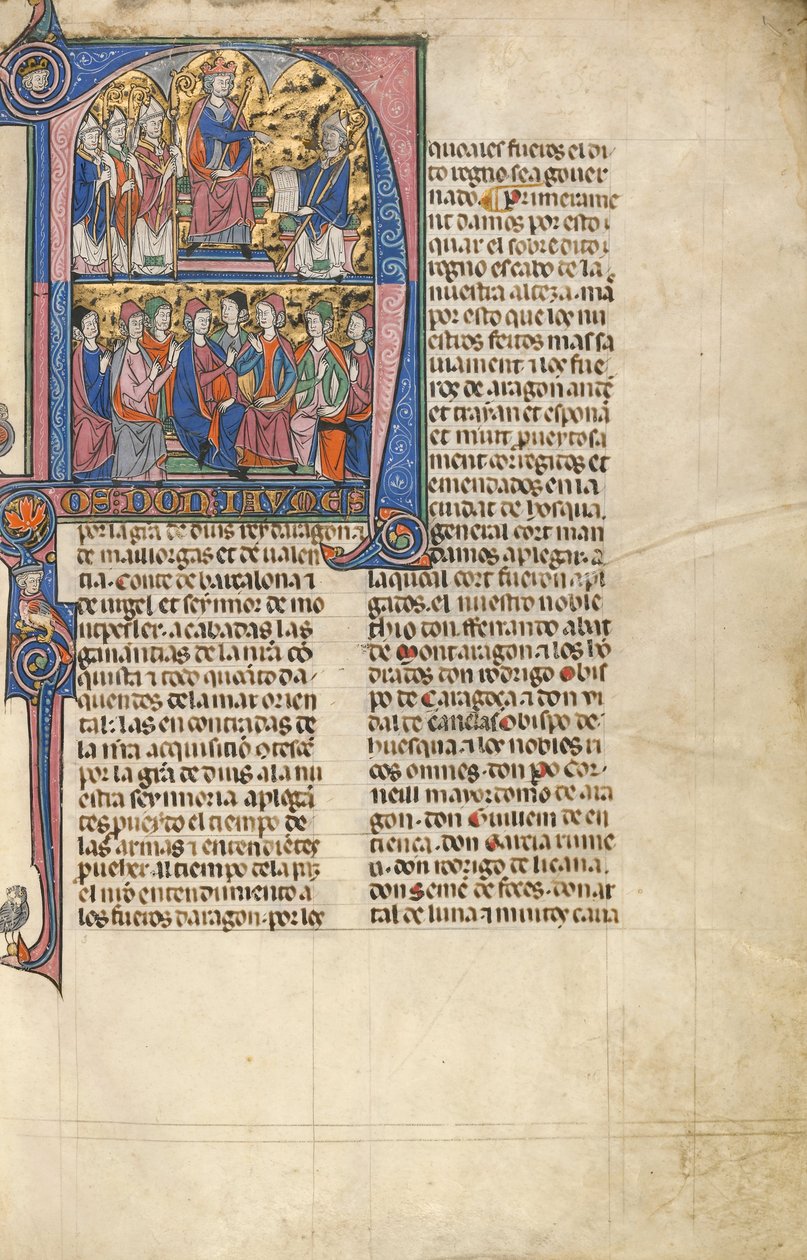 OS DON IAVMES
por la gra de dius rey daragon ⁊
de mallorgas et de ualen
cia. Conte de barcalona ⁊
de urgel et seynnor de mo
ntpesler. acabadas las
ganancias de la nra cō
quista ⁊ todo quanto da
quendes de la mar orien
tal: las encontradas de
la nra acquisitiō
por la gra de dius a la nu
estra seynnoria aplega
des pueyto el tiempo de
las armas ⁊ entendiētes
prueber al tiempo de la paz
el nro entendimiento a
los fueros daragon. por los
quoales fueros el di
to regno sea gouer
nado. Primerame
nt damos por esto
quar el sobredito
regno es cabo de la
nuestra alteza. mas
por esto que los nu
estros feitos
uament ⁊ los fue
ros de aragon ante
et trayan et esponā
et muit prueytosa
ment corregidos et
emendados en la
ciudat de hosqua.
general cort man
damos aplegar. a
la quoal cort fueron apl
gados. el nuestro noble
thio don fferrando abat
de Montaragon ⁊ los hō
drados don rodrigo Obis
po de Caragoça ⁊ don vi
dal de canelas Obispo de
huesqua. ⁊ los nobles ri
cos omnes. don Po Cor
neill mayordomo de ara
gon. don Guillem de en
tiença. don Garcia rume
u. don rodrigo de liçana.
don Semē de foces. don ar
tal de luna ⁊ muitos caua